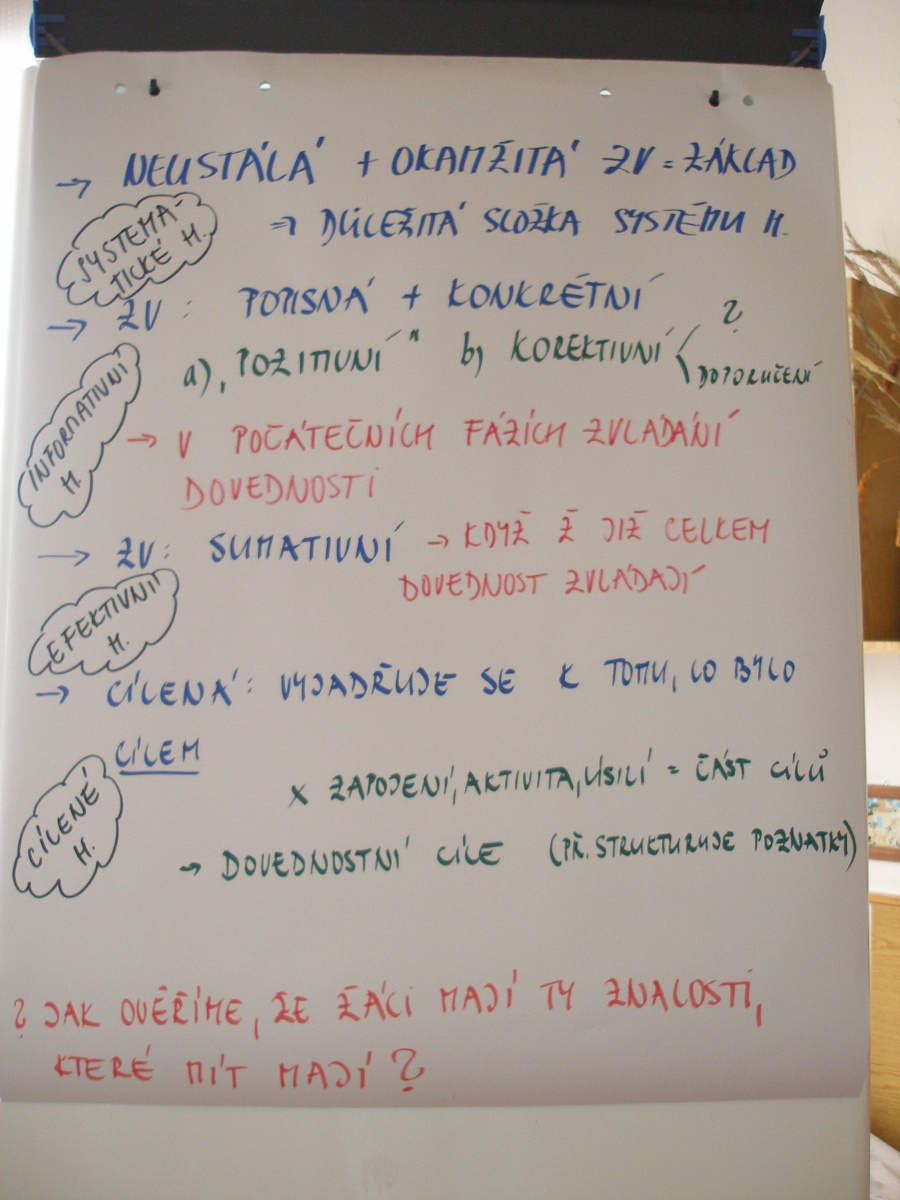 → NEUSTÁLÁ + OKAMŽITÁ ZV = ZÁKLAD
⇒ DŮLEŽITÁ SLOŽKA SYSTÉMU H.
SYSTEMA-
TICKÉ H.
→ ZV : POPISNÁ + KONKRÉTNÍ
a) „POZITIVNÍ" b) KOREKTIVNÍ < ?
DOPORUČENÍ
INFORMATIVNÍ
H.
→ V POČÁTEČNÍCH FÁZÍCH ZVLÁDÁNÍ
DOVEDNOSTI
→ ZV: SUMATIVNÍ → KDYŽ Ž JIŽ CELKEM
DOVEDNOST ZVLÁDAJÍ
EFEKTIVNÍ
H.
→ CÍLENÁ: VYJADŘUJE SE K TOMU, CO BYLO
CÍLEM
x ZAPOJENÍ, AKTIVITA, ÚSILÍ = ČÁST CÍLŮ
CÍLENÉ
H.
→ DOVEDNOSTNÍ CÍLE (PŘ. STRUKTURUJE POZNATKY)
? JAK OVĚŘÍME, ŽE ŽÁCI MAJÍ TY ZNALOSTI,
KTERÉ MÍT MAJÍ ?